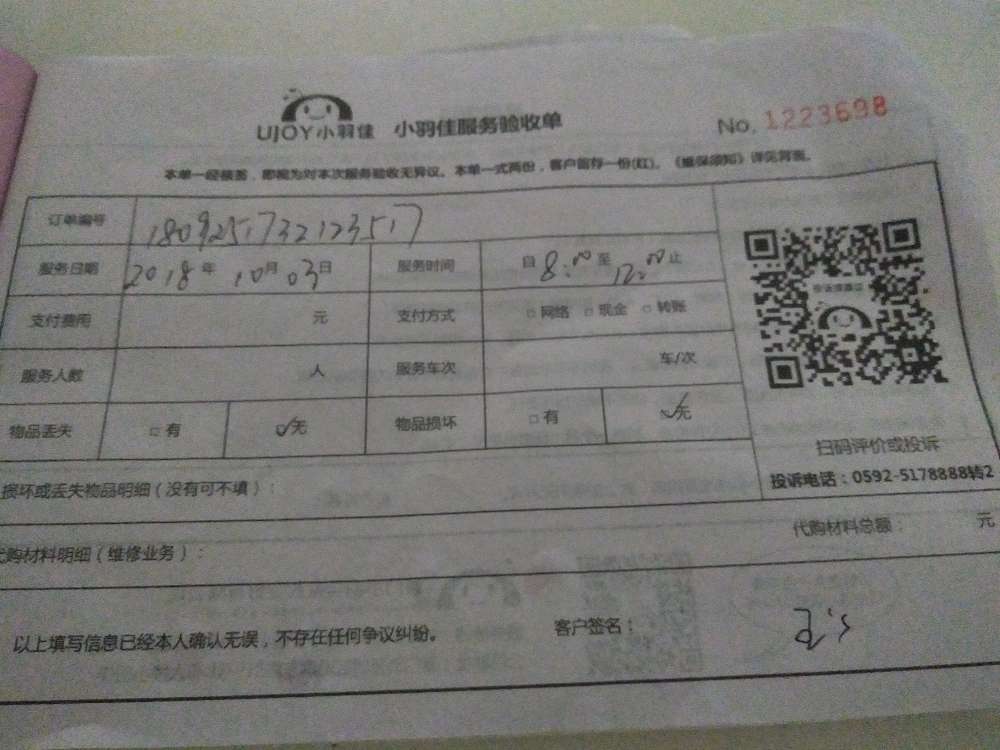 UJOY小羽佳 小羽佳服务验收单 No. 1223698
本单一经核签，即视为对本次服务验收无异议。本单一式两份，客户留存一份(红)。《维保须知》详见背面。
订单编号 180925173212351​7
服务日期 2018年10月03日 服务时间 自8:00至12:00止
支付费用 元 支付方式 □网络 □现金 □转账
服务人数 人 服务车次 车/次
物品丢失 □有 ☑无 物品损坏 □有 ☑无
扫码评价或投诉
投诉电话：0592-5178888转2
损坏或丢失物品明细（没有可不填）：
代购材料明细（维修业务）： 代购材料总额： 元
以上填写信息已经本人确认无误，不存在任何争议纠纷。 客户签名：